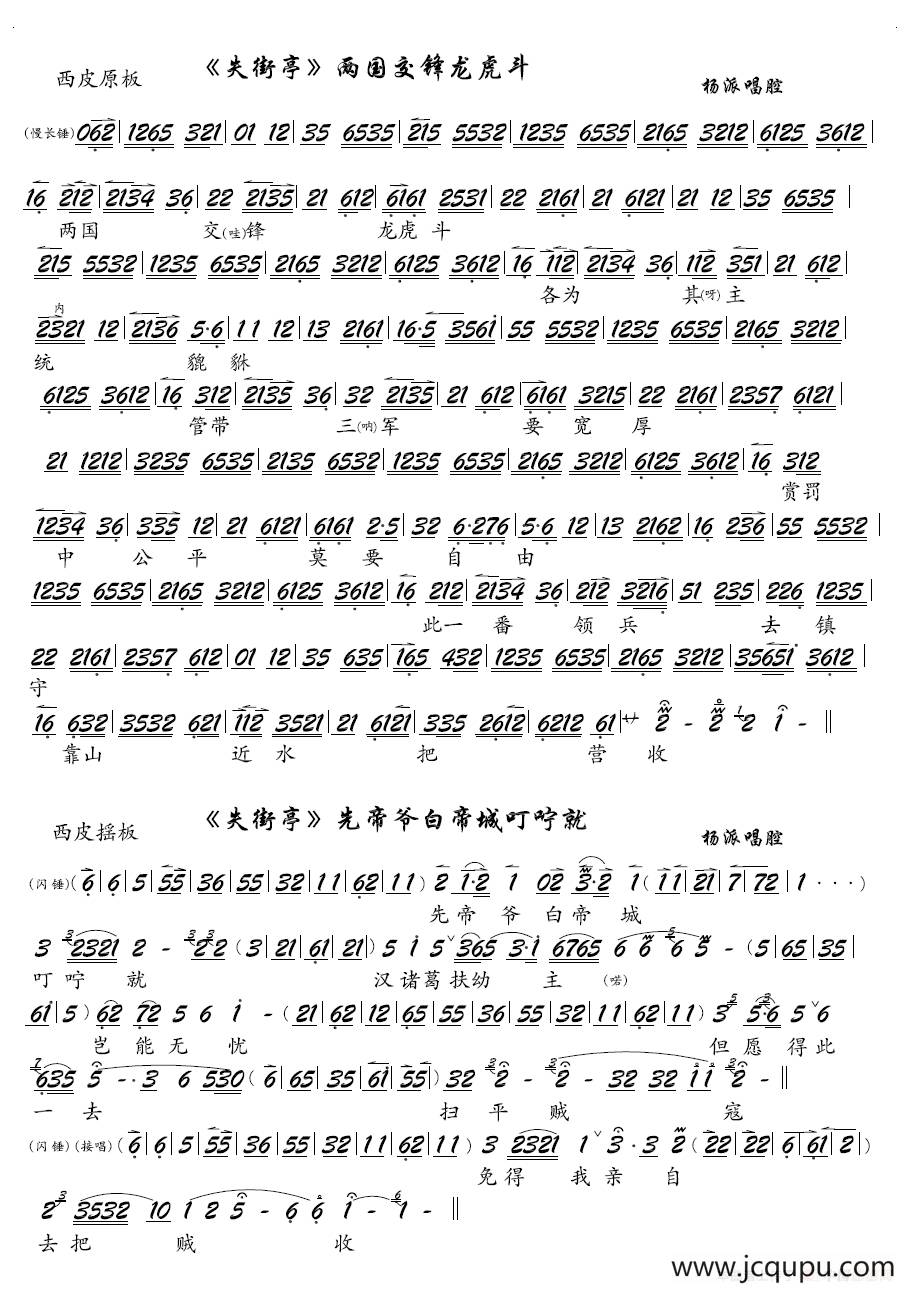 西皮原板 《失街亭》两国交锋龙虎斗 杨派唱腔
(慢长锤) 062|1265 321|01 12|35 6535|215 5532|1235 6535|2165 3212|6125 3612|
16 212|2134 36|22 2135|21 612|6161 2531|22 2161|21 6121|21 12|35 6535|
两国 交(哇)锋 龙虎 斗
215 5532|1235 6535|2165 3212|6125 3612|16 112|2134 36|112 351|21 612|
各为 其(呀)主
内
2321 12|2136 5·6|11 12|13 2161|16·5 3561|55 5532|1235 6535|2165 3212|
统 貔 貅
6125 3612|16 312|2135 36|32 2135|21 612|6161 3215|22 2161|2357 6121|
管带 三(呐)军 要 宽 厚
21 1212|3235 6535|2135 6532|1235 6535|2165 3212|6125 3612|16 312
赏罚
1234 36|335 12|21 6121|6161 2·5|32 6·276|5·6 12|13 2162|16 236|55 5532|
中 公 平 莫 要 自 由
1235 6535|2165 3212|6125 3612|16 212|2134 36|212 3216|51 235|226 1235|
此一 番 领 兵 去 镇
22 2161|2357 612|01 12|35 635|165 432|1235 6535|2165 3212|35651 3612|
守
16 632|3532 621|112 3521|21 6121|335 2612|6212 61|廾 2 - 2 1 2 1 -‖
靠山 近 水 把 营 收
西皮摇板 《失街亭》先帝爷白帝城叮咛就 杨派唱腔
(闪锤)(6|6|5|55|36|55|32|11|62|11) 2 1·2 1 02 3·2 1(11|21|7|72|1 ···)
先 帝 爷 白 帝 城
3 3 2321 2 - 32 32(3|21|61|21) 5 1 5ˇ365 3·1 6765 6 6 5 6 5 -(5|65|35|
叮 咛 就 汉 诸葛扶幼 主 (喏)
61|5) 62 72 5 6 1 -(21|62|12|65|55|36|55|32|11|62|11) 3 5 5·6 5ˇ6
岂 能 无 忧 但 愿 得 此
7 635 5 -·3 6 530(6|65|35|61|55) 32 3 2 - 3 2 - 32 32 11 3 2 -‖
一 去 扫 平 贼 寇
(闪锤)(接唱)(6|6|5|55|36|55|32|11|62|11) 3 2321 1ˇ3·3 2(22|22|6|61|2)
免 得 我 亲 自
2 3 3532 10 1 2 5 - 6 6 1 - 6 1 -‖
去 把 贼 收
www.jcqupu.com